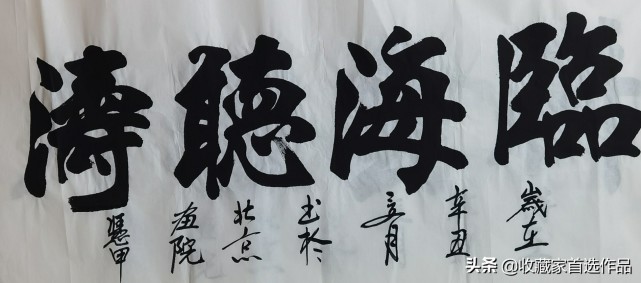 臨海聽濤
歲在
辛丑
月
书於
北京
画院
甲
头条 @收藏家首选作品